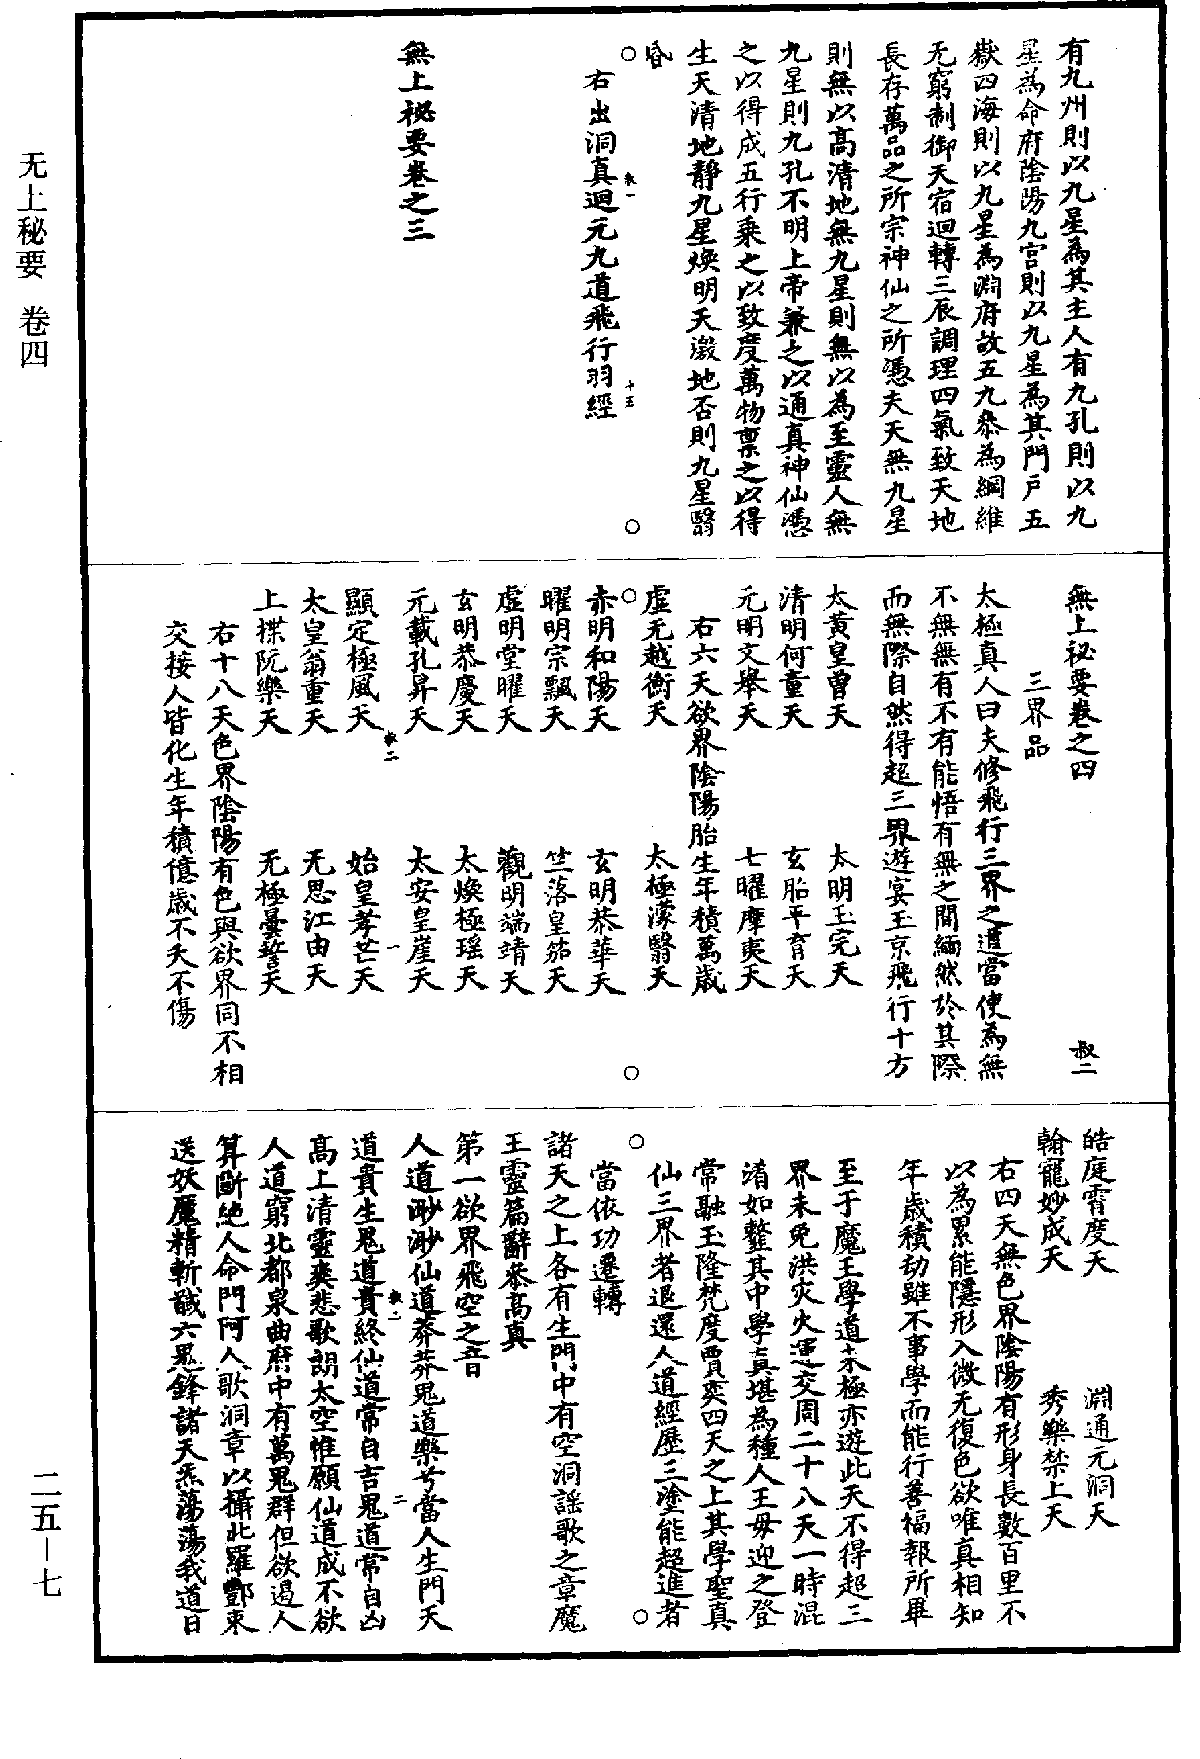 无上秘要 卷四
二五—七
有九州則以九星為其主人有九孔則以九
星為命府陰陽九宮則以九星為其門戶五
嶽四海則以九星為淵府故五九叅為綱維
无窮制御天宿迴轉三辰調理四氣致天地
長存萬品之所宗神仙之所憑夫天無九星
則無以高清地無九星則無以為至靈人無
九星則九孔不明上帝兼之以通真神仙憑
之以得成五行乘之以致度萬物禀之以得
生天清地靜九星煥明天激地否則九星翳
昏
右出洞真迴元九道飛行羽經
無上祕要卷之三
無上祕要卷之四 叔二
三界品
太極真人曰夫修飛行三界之道當使為無
不無無有不有能悟有無之間緬然於其際
而無際自然得超三界遊宴玉京飛行十方
太黃皇曾天 太明玉完天
清明何童天 玄胎平育天
元明文舉天 七曜摩夷天
右六天欲界陰陽胎生年積萬歲
虛无越衡天 太極濛翳天
赤明和陽天 玄明恭華天
曜明宗飄天 竺落皇笳天
虛明堂曜天 觀明端靖天
玄明恭慶天 太煥極瑶天
元載孔昇天 太安皇崖天
顯定極風天 始皇孝芒天
太皇翁重天 无思江由天
上揲阮樂天 无極曇誓天
右十八天色界陰陽有色與欲界同不相
交接人皆化生年積億歲不夭不傷
皓庭霄度天 淵通元洞天
翰寵妙成天 秀樂禁上天
右四天無色界陰陽有形身長數百里不
以為累能隱形入微无復色欲唯真相知
年歲積劫雖不事學而能行善福報所畢
至于魔王學道未極亦遊此天不得超三
界未免洪災火運交周二十八天一時混
淆如整其中學真堪為種人王母迎之登
常融玉隆梵度賈奕四天之上其學聖真
仙三界者退還人道經歷三塗能超進者
當依功遷轉
諸天之上各有生門中有空洞謡歌之章魔
王靈篇辭叅高真
第一欲界飛空之音
人道渺渺仙道莽莽鬼道樂兮當人生門天
道貴生鬼道貴終仙道常自吉鬼道常自凶
高上清靈爽悲歌朗太空惟願仙道成不欲
人道窮北都泉曲府中有萬鬼群但欲遏人
算斷絕人命門阿人歌洞章以攝北羅酆束
送妖魔精斬馘六鬼鋒諸天炁蕩蕩我道日